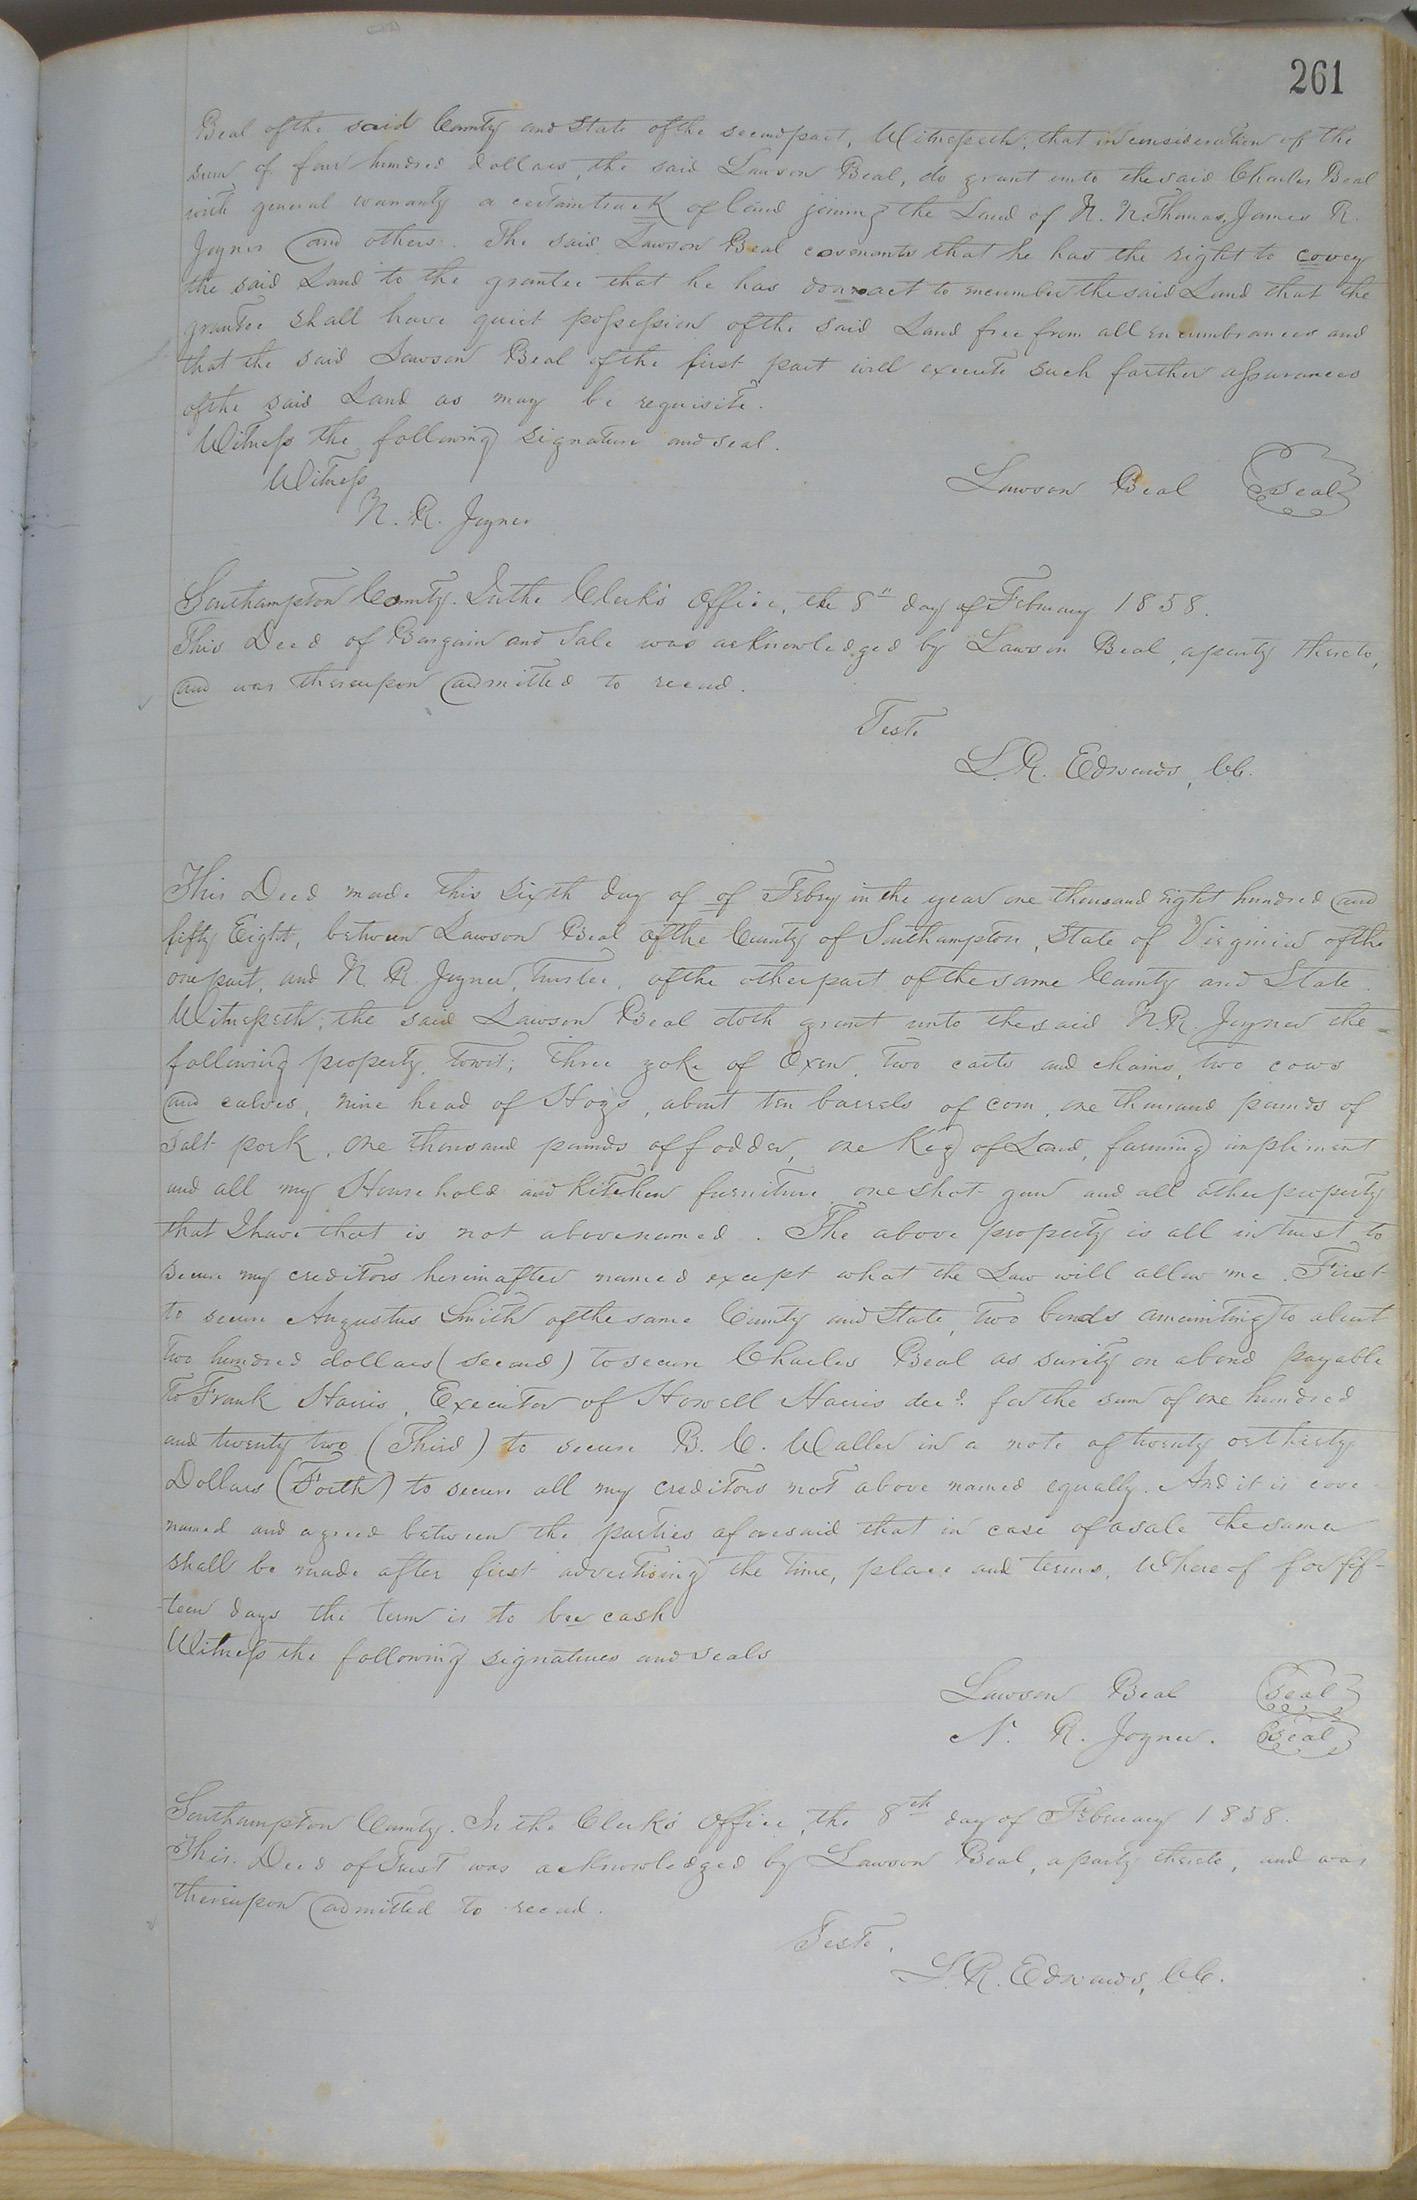 261
Beal of the said County and State of the second part, Witnesseth, that in consideration of the
sum of four hundred dollars, the said Lawson Beal, do grant unto the said Charles Beal
with general warranty a certain track of land joining the Land of N. N. Thomas, James R.
Joyner and others. The said Lawson Beal covenants that he has the right to covey
the said Land to the grantee that he has don no act to encumber the said Land that the
grantee shall have quiet possession of the said Land free from all encumbrances and
that the said Lawson Beal of the first part will execute such farther assurances
of the said Land as may be requisite.
Witness the following signature and seal.
Witness
Lawson Beal Seal
N. R. Joyner
Southampton County. In the Clerk's Office, the 8" day of February 1858.
This Deed of Bargain and Sale was acknowledged by Lawson Beal, a party thereto,
and was thereupon admitted to record.
Teste
L. R. Edwards, CC.
This Deed made this sixth day of of Febry in the year one thousand eight hundred and
fifty Eight, between Lawson Beal of the County of Southampton, State of Virginia of the
one part, and N. R. Joyner, Trustee, of the other part of the same County and State.
Witnesseth, the said Lawson Beal doth grant unto the said N. R. Joyner the
following property, towit; three yoke of Oxen, two carts and chains, two cows
and calves, nine head of Hogs, about ten barrels of corn, one thousand pounds of
Salt pork, one thousand pounds of fodder, one Keg of Lard, farming impliment
and all my Household and Kitchen furniture one shot gun and all other property
that I have that is not above named. The above property is all in trust to
secure my creditors hereinafter named except what the Law will allow me. First
to secure Augustus Smith of the same County and State, two bonds amounting to about
two hundred dollars (second) to secure Charles Beal as surity on a bond payable
to Frank Harris, Executor of Howell Harris decd. for the sum of one hundred
and twenty two (Third) to secure B. C. Waller in a note of twenty or thirty
Dollars (Forth) to secure all my creditors not above named equally. And it is cove-
naned and agreed between the parties aforesaid that in case of a sale the same
shall be made after first advertising the time, place and terms, Where of for fif-
-teen days the term is to bee cash
Witness the following signatures and seals
Lawson Beal Seal
N. R. Joyner. Seal
Southampton County. In the Clerk's Office, the 8th day of February 1858.
This Deed of Trust was acknowledged by Lawson Beal, a party thereto, and was
thereupon admitted to record.
Teste.
L. R. Edwards, CC.